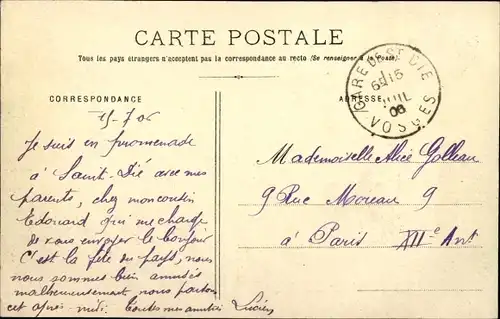 CARTE POSTALE
Tous les pays étrangers n'acceptent pas la correspondance au recto (Se renseigner à la Poste).
CORRESPONDANCE
ADRESSE
GARE DE ST DIE
15
JUIL
06
VOSGES
15-7 06
Je suis en promenade
à Saint-Dié avec mes
parents, chez mon cousin
Edouard qui me charge
de vous envoyer le bonjour
C'est la fête du pays, nous
nous sommes bien amusés
malheureusement nous partons
cet après-midi. Toutes mes amitiés Lucien
Mademoiselle Alice Golleau
9 Rue Moreau 9
à Paris XIIe Arrt